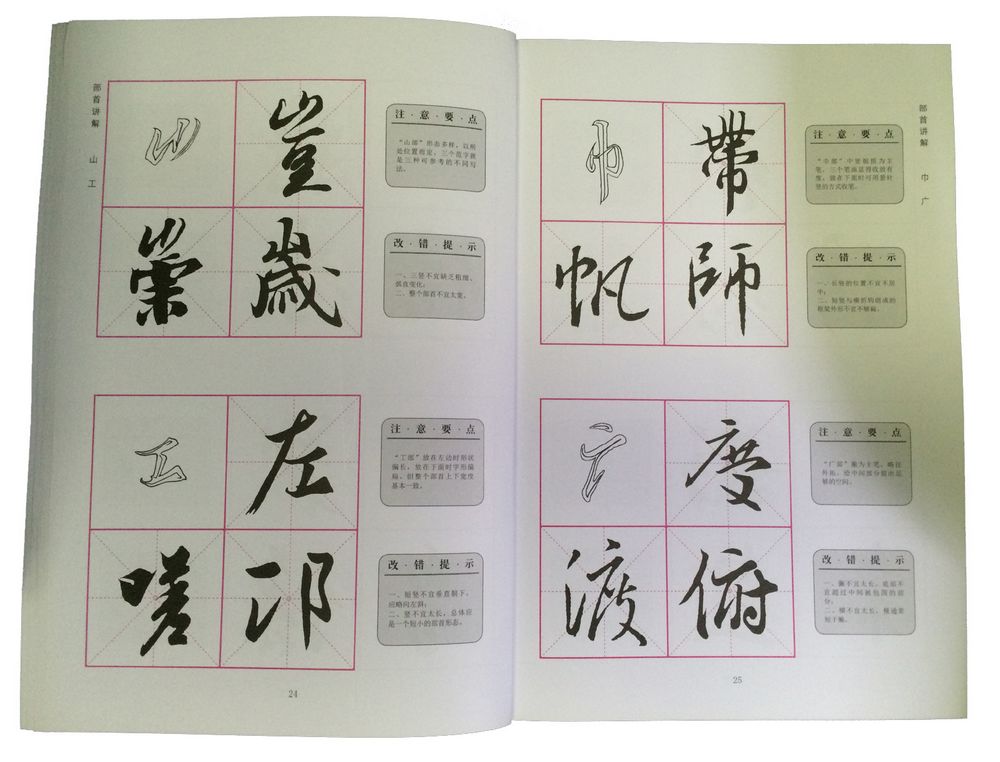 部首讲解
山
工
山
豈
崇
歲
注·意·要·点
“山部”形态多样，以所
处位置而定，三个范字就
是三种可参考的不同写
法。
改·错·提·示
一、三竖不宜缺乏粗细、
弧直变化；
二、整个部首不宜太宽。
工
左
嗟
邛
注·意·要·点
“工部”放在左边时形状
偏长，放在下面时字形偏
扁，但整个部首上下宽度
基本一致。
改·错·提·示
一、短竖不宜垂直躺下，
应略向左斜；
二、竖不宜太长，总体应
是一个短小的部首形态。
24
部首讲解
巾
广
巾
帶
帆
師
注·意·要·点
“巾部”中竖振拔为主
笔，三个笔画显得收放有
度，放在下面时可用悬针
竖的方式收笔。
改·错·提·示
一、长竖的位置不宜不居
中；
二、短竖与横折钩组成的
框架外形不宜不够扁。
广
度
渡
俯
注·意·要·点
“广部”撇为主笔，略往
外拓，给中间部分留出足
够的空间。
改·错·提·示
一、撇不宜太长，底部不
宜超过中间被包围的部
分；
二、横不宜太长，横通常
短于撇。
25